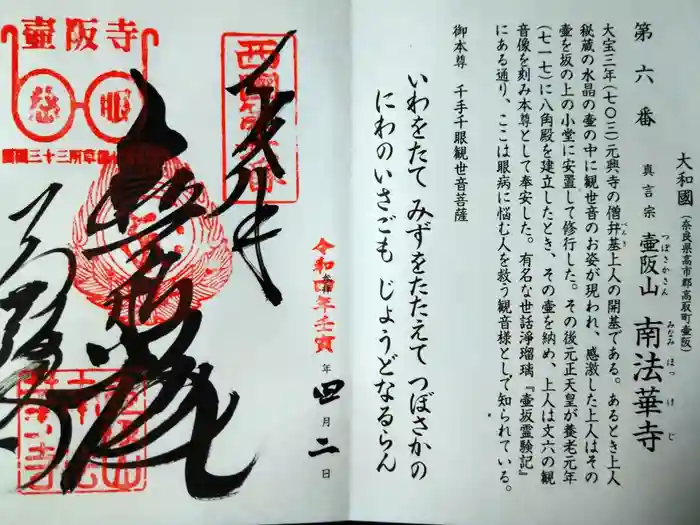 第六番
大和國（奈良県高市郡高取町壷阪）
真言宗 壷阪山 南法華寺
つぼさかさん みなみほっけじ
大宝三年（七〇三）元興寺の僧弁基上人の開基である。あるとき上人
べんき
秘蔵の水晶の壷の中に観世音のお姿が現われ、感激した上人はその
壷を坂の上の小堂に安置して修行した。その後元正天皇が養老元年
（七一七）に八角殿を建立したとき、その壷を納め、上人は丈六の観
音像を刻み本尊として奉安した。有名な世話浄瑠璃『壷坂霊験記』
にある通り、ここは眼病に悩む人を救う観音様として知られている。
御本尊 千手千眼観世音菩薩
いわをたて みずをたたえて つぼさかの
にわのいさごも じょうどなるらん
令和四年壬寅
年四月二日
壷阪寺
慈眼